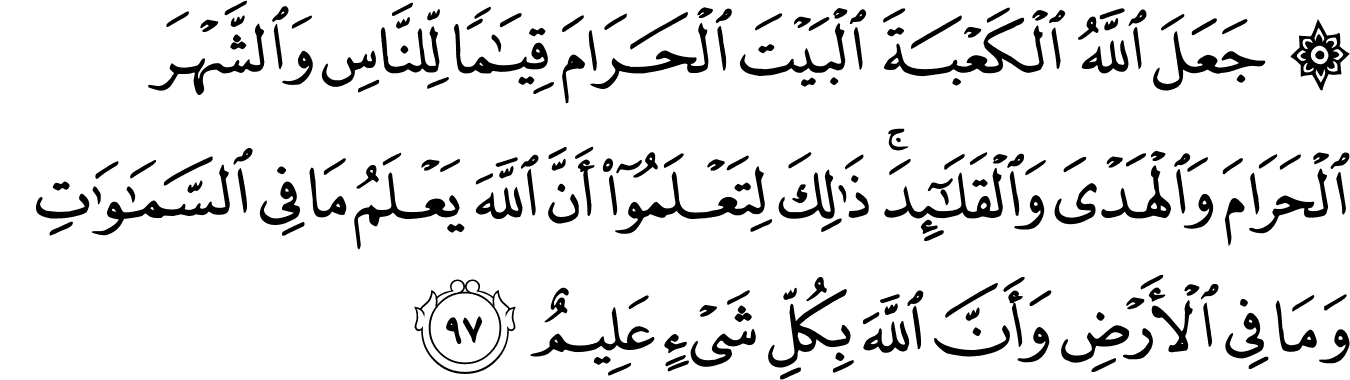 ۞ جَعَلَ ٱللَّهُ ٱلْكَعْبَةَ ٱلْبَيْتَ ٱلْحَرَامَ قِيَٰمًا لِّلنَّاسِ وَٱلشَّهْرَ
ٱلْحَرَامَ وَٱلْهَدْىَ وَٱلْقَلَٰٓئِدَ ۚ ذَٰلِكَ لِتَعْلَمُوٓا۟ أَنَّ ٱللَّهَ يَعْلَمُ مَا فِى ٱلسَّمَٰوَٰتِ
وَمَا فِى ٱلْأَرْضِ وَأَنَّ ٱللَّهَ بِكُلِّ شَىْءٍ عَلِيمٌ ٩٧